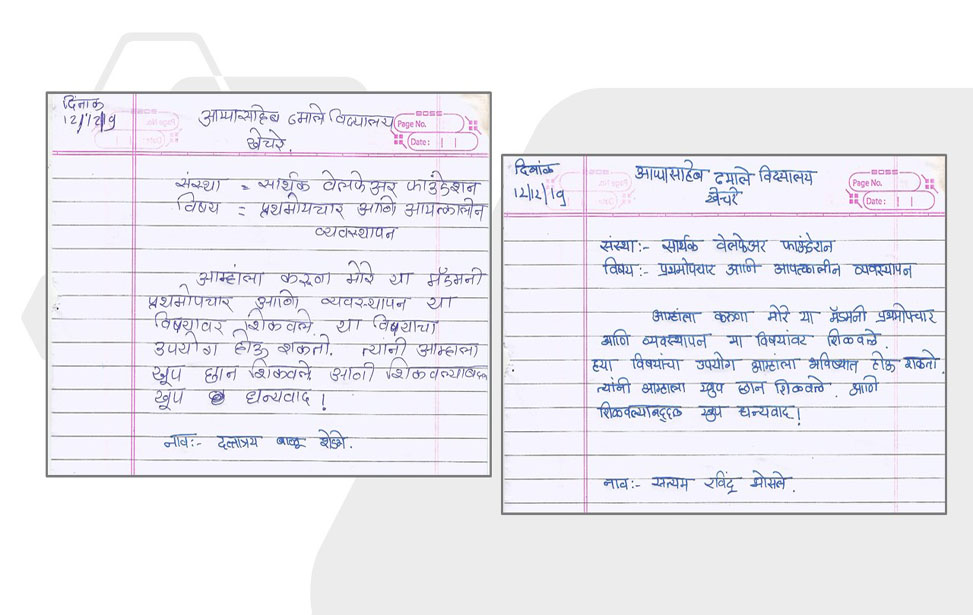 दिनांक
12/12/19
आप्पासाहेब ढमाले विद्यालय
खेचरे.
Page No.
Date:
संस्था = सार्थक वेलफेअर फाउंडेशन
विषय = प्रथमोपचार आणि आपत्कालीन
व्यवस्थापन
आम्हांला करुणा मोरे या मॅडमनी
प्रथमोपचार आणि व्यवस्थापन या
विषयावर शिकवले. या विषयाचा
उपयोग होऊ शकतो. त्यांनी आम्हाला
खूप छान शिकवले आणी शिकवल्याबद्दल
खूप धन्यवाद!
नाव:- दत्तात्रय बाळू
दिनांक
12/12/19
आप्पासाहेब ढमाले विद्यालय
खेचरे
Page No.
Date:
संस्था:- सार्थक वेलफेअर फाउंडेशन
विषय:- प्रथमोपचार आणि आपत्कालीन व्यवस्थापन
आम्हांला करुणा मोरे या मॅडमनी प्रथमोपचार
आणि व्यवस्थापन या विषयांवर शिकवले.
ह्या विषयांचा उपयोग आम्हांला भविष्यात होऊ शकतो.
त्यांनी आम्हाला खुप छान शिकवले. आणि
शिकवल्याबद्दल खुप धन्यवाद!
नाव:- सत्यम रविंद्र भोसले.